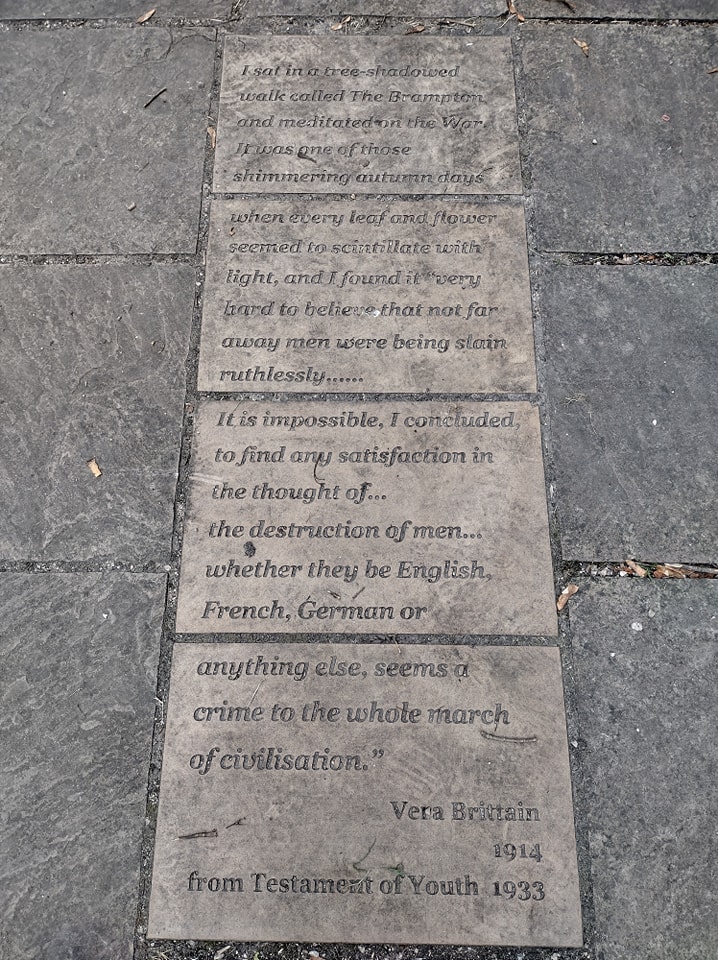 I sat in a tree-shadowed
walk called The Brampton,
and meditated on the War.
It was one of those
shimmering autumn days
when every leaf and flower
seemed to scintillate with
light, and I found it “very
hard to believe that not far
away men were being slain
ruthlessly......
It is impossible, I concluded,
to find any satisfaction in
the thought of...
the destruction of men...
whether they be English,
French, German or
anything else, seems a
crime to the whole march
of civilisation.”
Vera Brittain
1914
from Testament of Youth 1933